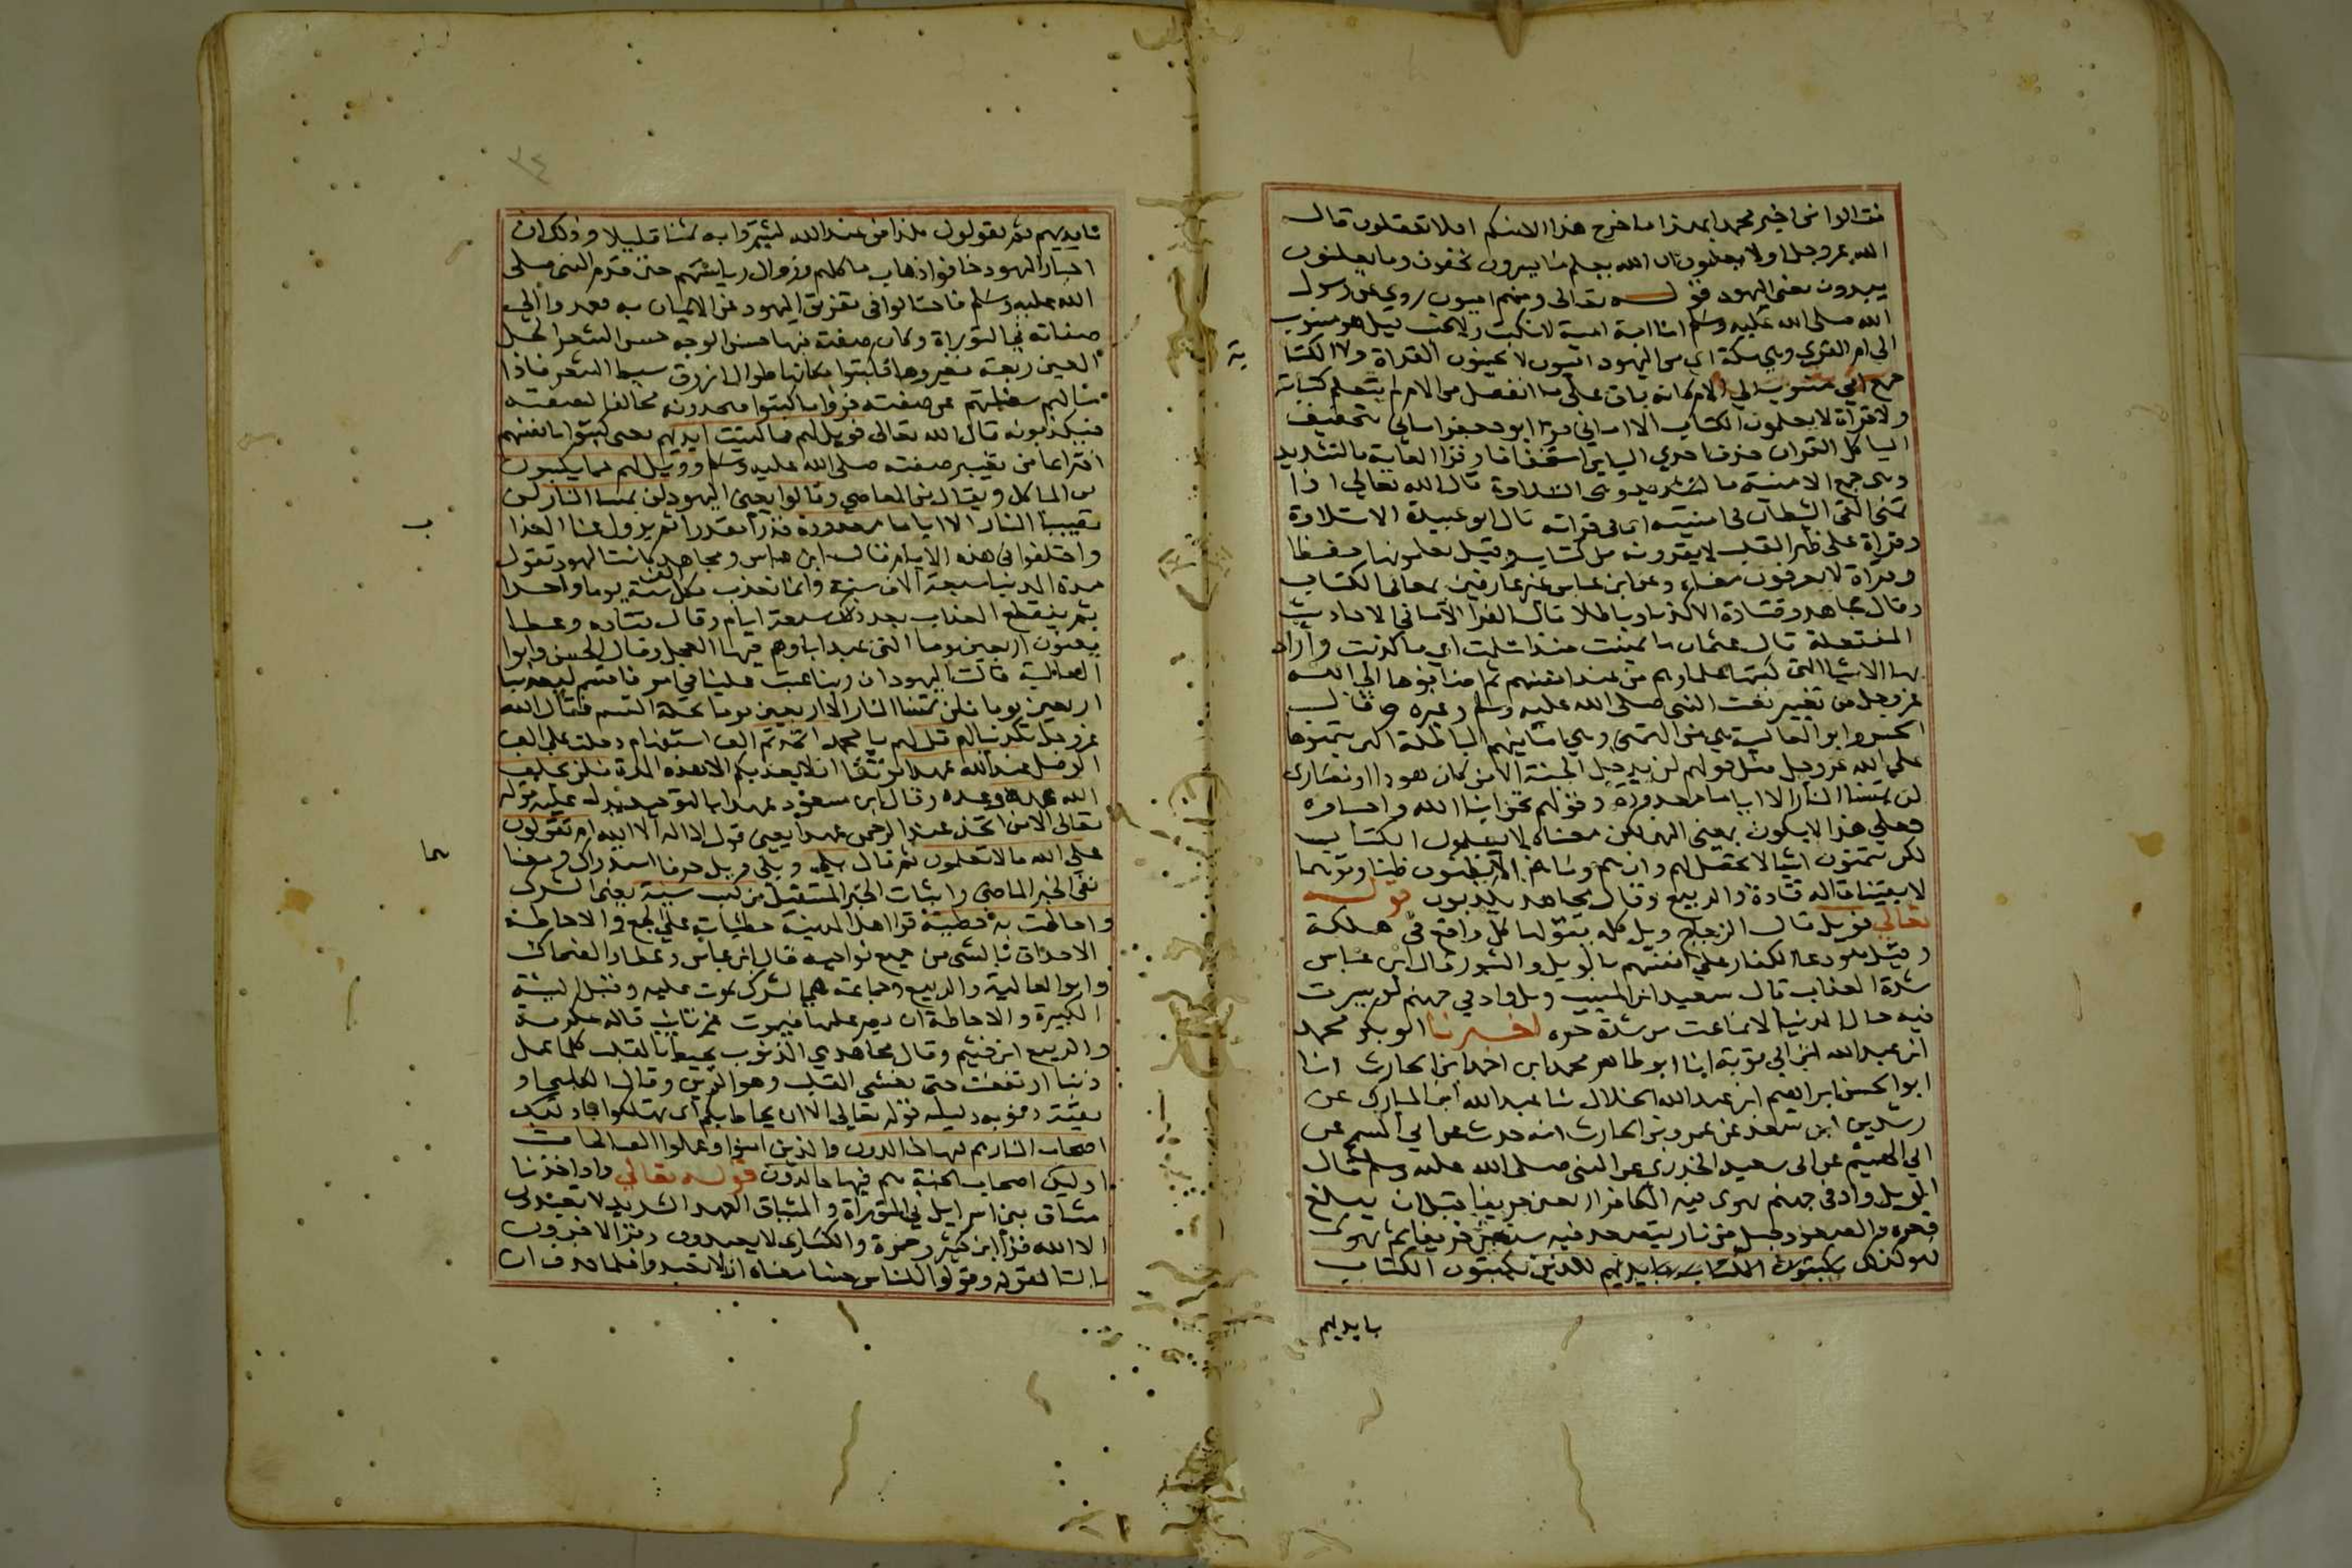 فقالوا من اخبر محمدا بهذا ما خرج هذا الا منكم افلا تعقلون قال
الله عز وجل اولا يعلمون ان الله يعلم ما يسرون يخفون وما يعلنون
يبدون يعني اليهود قوله تعالى ومنهم اميون روي عن رسول
الله صلى الله عليه وسلم انا امة امية لا نكتب ولا نحسب قيل هو منسوب
الى ام القرى وهي مكة اي من اليهود اميون لا يحسنون القراة ولا الكتا
بة
جمع امي منسوب الى الام كانه باق على ما انفصل من الام لم يتعلم كتابة
ولا قراة لا يعلمون الكتاب الا اماني قرا ابو جعفر اماني بتخفيف
اليا كل القران حذف احدي اليايين استخفافا وقرا العامة بالتشديد
وهي جمع الامنية بالتشديد وهي التلاوة قال الله تعالى اذا
تمنى القى الشيطان في امنيته اي في قراته قال ابو عبيدة الا تلاوة
وقراة على ظهر القلب لا يقرونه من كتاب وقيل يعلمونها حفظا
وقراة لا يعرفون معناه وعن ابن عباس غير عارفين بمعاني الكتاب
وقال مجاهد وقتادة الا كذبا وباطلا قال الفرا الاماني الاحاديث
المفتعلة قال عثمان ما تمنيت منذ اسلمت اي ما كذبت واراد
بها الاشيا التي كتبها علماوهم من عند انفسهم ثم اضافوها الى الله
عز وجل من تغيير نعت النبي صلى الله عليه وسلم وغيره وقال
الحسن وابو العالية هي من التمني وهي امانيهم الباطلة التي يتمنونها
على الله عز وجل مثل قولهم لن يدخل الجنة الا من كان هودا او نصارى
لن تمسنا النار الا اياما معدودة وقولهم نحن ابنا الله واحباوه
فعلى هذا الا يكون بمعنى لكن معناه لا يعلمون الكتاب
لكن يتمنون اشيا لا تحصل لهم وان هم وما هم الا يظنون ظنا وتوهما
لا يقينا قاله قتادة والربيع وقال مجاهد يكذبون قوله
تعالى فويل قال الزجاج ويل كلمة يقولها كل واقع في هلكة
وقيل هو دعا الكفار على انفسهم بالويل والثبور قال ابن عباس
شدة العذاب قال سعيد ابن المسيب ويل واد في جهنم لو سيرت
فيه جبال الدنيا لانماعت من شدة حره اخبرنا ابو بكر محمد
ابن عبد الله ابن ابي توبة انا ابو طاهر محمد ابن احمد ابن الحارث انا
ابو الحسن ابراهيم ابن عبد الله الخلال ثنا عبد الله ابن المبارك عن
رشدين ابن سعد عن عمرو بن الحارث انه حدث عن ابي السمح عن
ابي الهيثم عن ابي سعيد الخدري عن النبي صلى الله عليه وسلم قال
الويل واد في جهنم يهوي فيه الكافر اربعين خريفا قبل ان يبلغ
قعره والصعود جبل من نار يتصعد فيه سبعين خريفا ثم يهوي
فهو كذلك يكتبون الكتاب بايديهم للذين يكتبون الكتاب
بايديهم
بايديهم ثم يقولون هذا من عند الله ليشتروا به ثمنا قليلا وذلك ان
احبار اليهود خافوا ذهاب ماكلهم وزوال رياستهم حين قدم النبي صلى
الله عليه وسلم فاحتالوا في تعويق اليهود عن الايمان به فعمدوا الى
صفاته في التوراة وكان صفته فيها حسن الوجه حسن الشعر اكحل
العين ربعة فغيروها فكتبوا مكانها طوال ازرق سبط الشعر فاذا
سالهم سفلتهم عن صفته قروا ما كتبوا فيجدونه مخالفا لصفته
فيكذبونه قال الله تعالى فويل لهم مما كتبت ايديهم يعني كتبوا بانفسهم
اختراعا من تغيير صفته صلى الله عليه وسلم وويل لهم مما يكسبون
من الماكل ويقال من المعاصي وقالوا يعني اليهود لن تمسنا النار لن
تصيبنا النار الا اياما معدودة قدرا مقدرا ثم يزول عنا العذا
ب
واختلفوا في هذه الايام فقال ابن عباس ومجاهد كانت اليهود تقول
مدة الدنيا سبعة الاف سنة وانما نعذب بكل الف سنة يوما واحدا
ثم ينقطع العذاب بعد ذلك سبعة ايام وقال قتادة وعطا
يعنون اربعين يوما التي عبد اباوهم فيها العجل وقال الحسن وابوا
العالية قالت اليهود ان ربنا عتب علينا في امر فاقسم ليعذبنا
اربعين يوما فلن تمسنا النار الا اربعين يوما تحلة القسم فقال الله
عز وجل تكذيبا لهم قل لهم يا محمد اتخذتم الف استفهام دخلت على الف
الوصل عند الله عهدا موثقا ان لا يعذبكم الا بهذه المدة فلن يخلف
الله عهده وعده وقال ابن مسعود عهدا بالتوحيد يدل عليه قوله
تعالى الا من اتخذ عند الرحمن عهدا يعني قول لا اله الا الله ام تقولون
على الله ما لا تعلمون ثم قال بلى وبلى وبل حرفا استدراك ومعنا
هما
نفي الخبر الماضي واثبات الخبر المستقبل من كسب سيئة يعني الشرك
واحاطت به خطيئته قرا اهل المدينة خطيئاته على الجمع والاحاطة
الاحداق بالشي من جميع نواحيه قال ابن عباس وعطا والضحاك
وابو العالية والربيع وجماعة هي الشرك يموت عليه وقيل السيئة
الكبيرة والاحاطة ان يصر عليها فيموت غير تايب قاله عكرمة
والربيع ابن خثيم وقال مجاهد هي الذنوب تحيط بالقلب كلما عمل
ذنبا ارتفعت حتى تغشي القلب وهو الرين وقال الكلبي او
بقته ذنوبه دليله قوله تعالى الا ان يحاط بكم اي تهلكوا فاولئك
اصحاب النار هم فيها خالدون والذين امنوا وعملوا الصالحات
اوليك اصحاب الجنة هم فيها خالدون قوله تعالى واذ اخذنا
ميثاق بني اسرايل في التوراة والميثاق العهد الشديد لا تعبدون
الا الله قرا ابن كثير وحمزة والكسائي لا يعبدون وقرا الاخرون
بالتا لقوله وقولوا للناس حسنا معناه ان لا تعبدوا فلما حذف ان